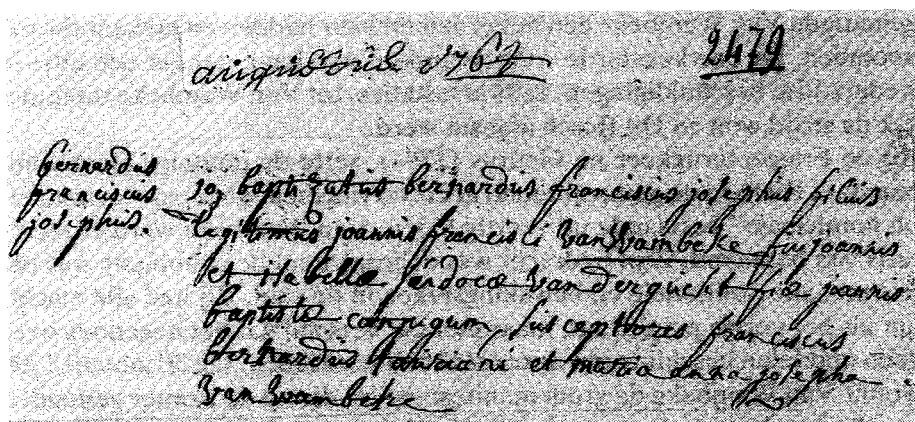 augustus 1764
2479
bernardus
franciscus
josephus.
10 baptizatus bernardus franciscus josephus filius
legitimus joannis francisci van Wambeke fii joannis
et isabellæ van dergucht fiæ joannis
baptistæ conjugum, susceptores franciscus
bernardus et maria anna josepha
van wambeke